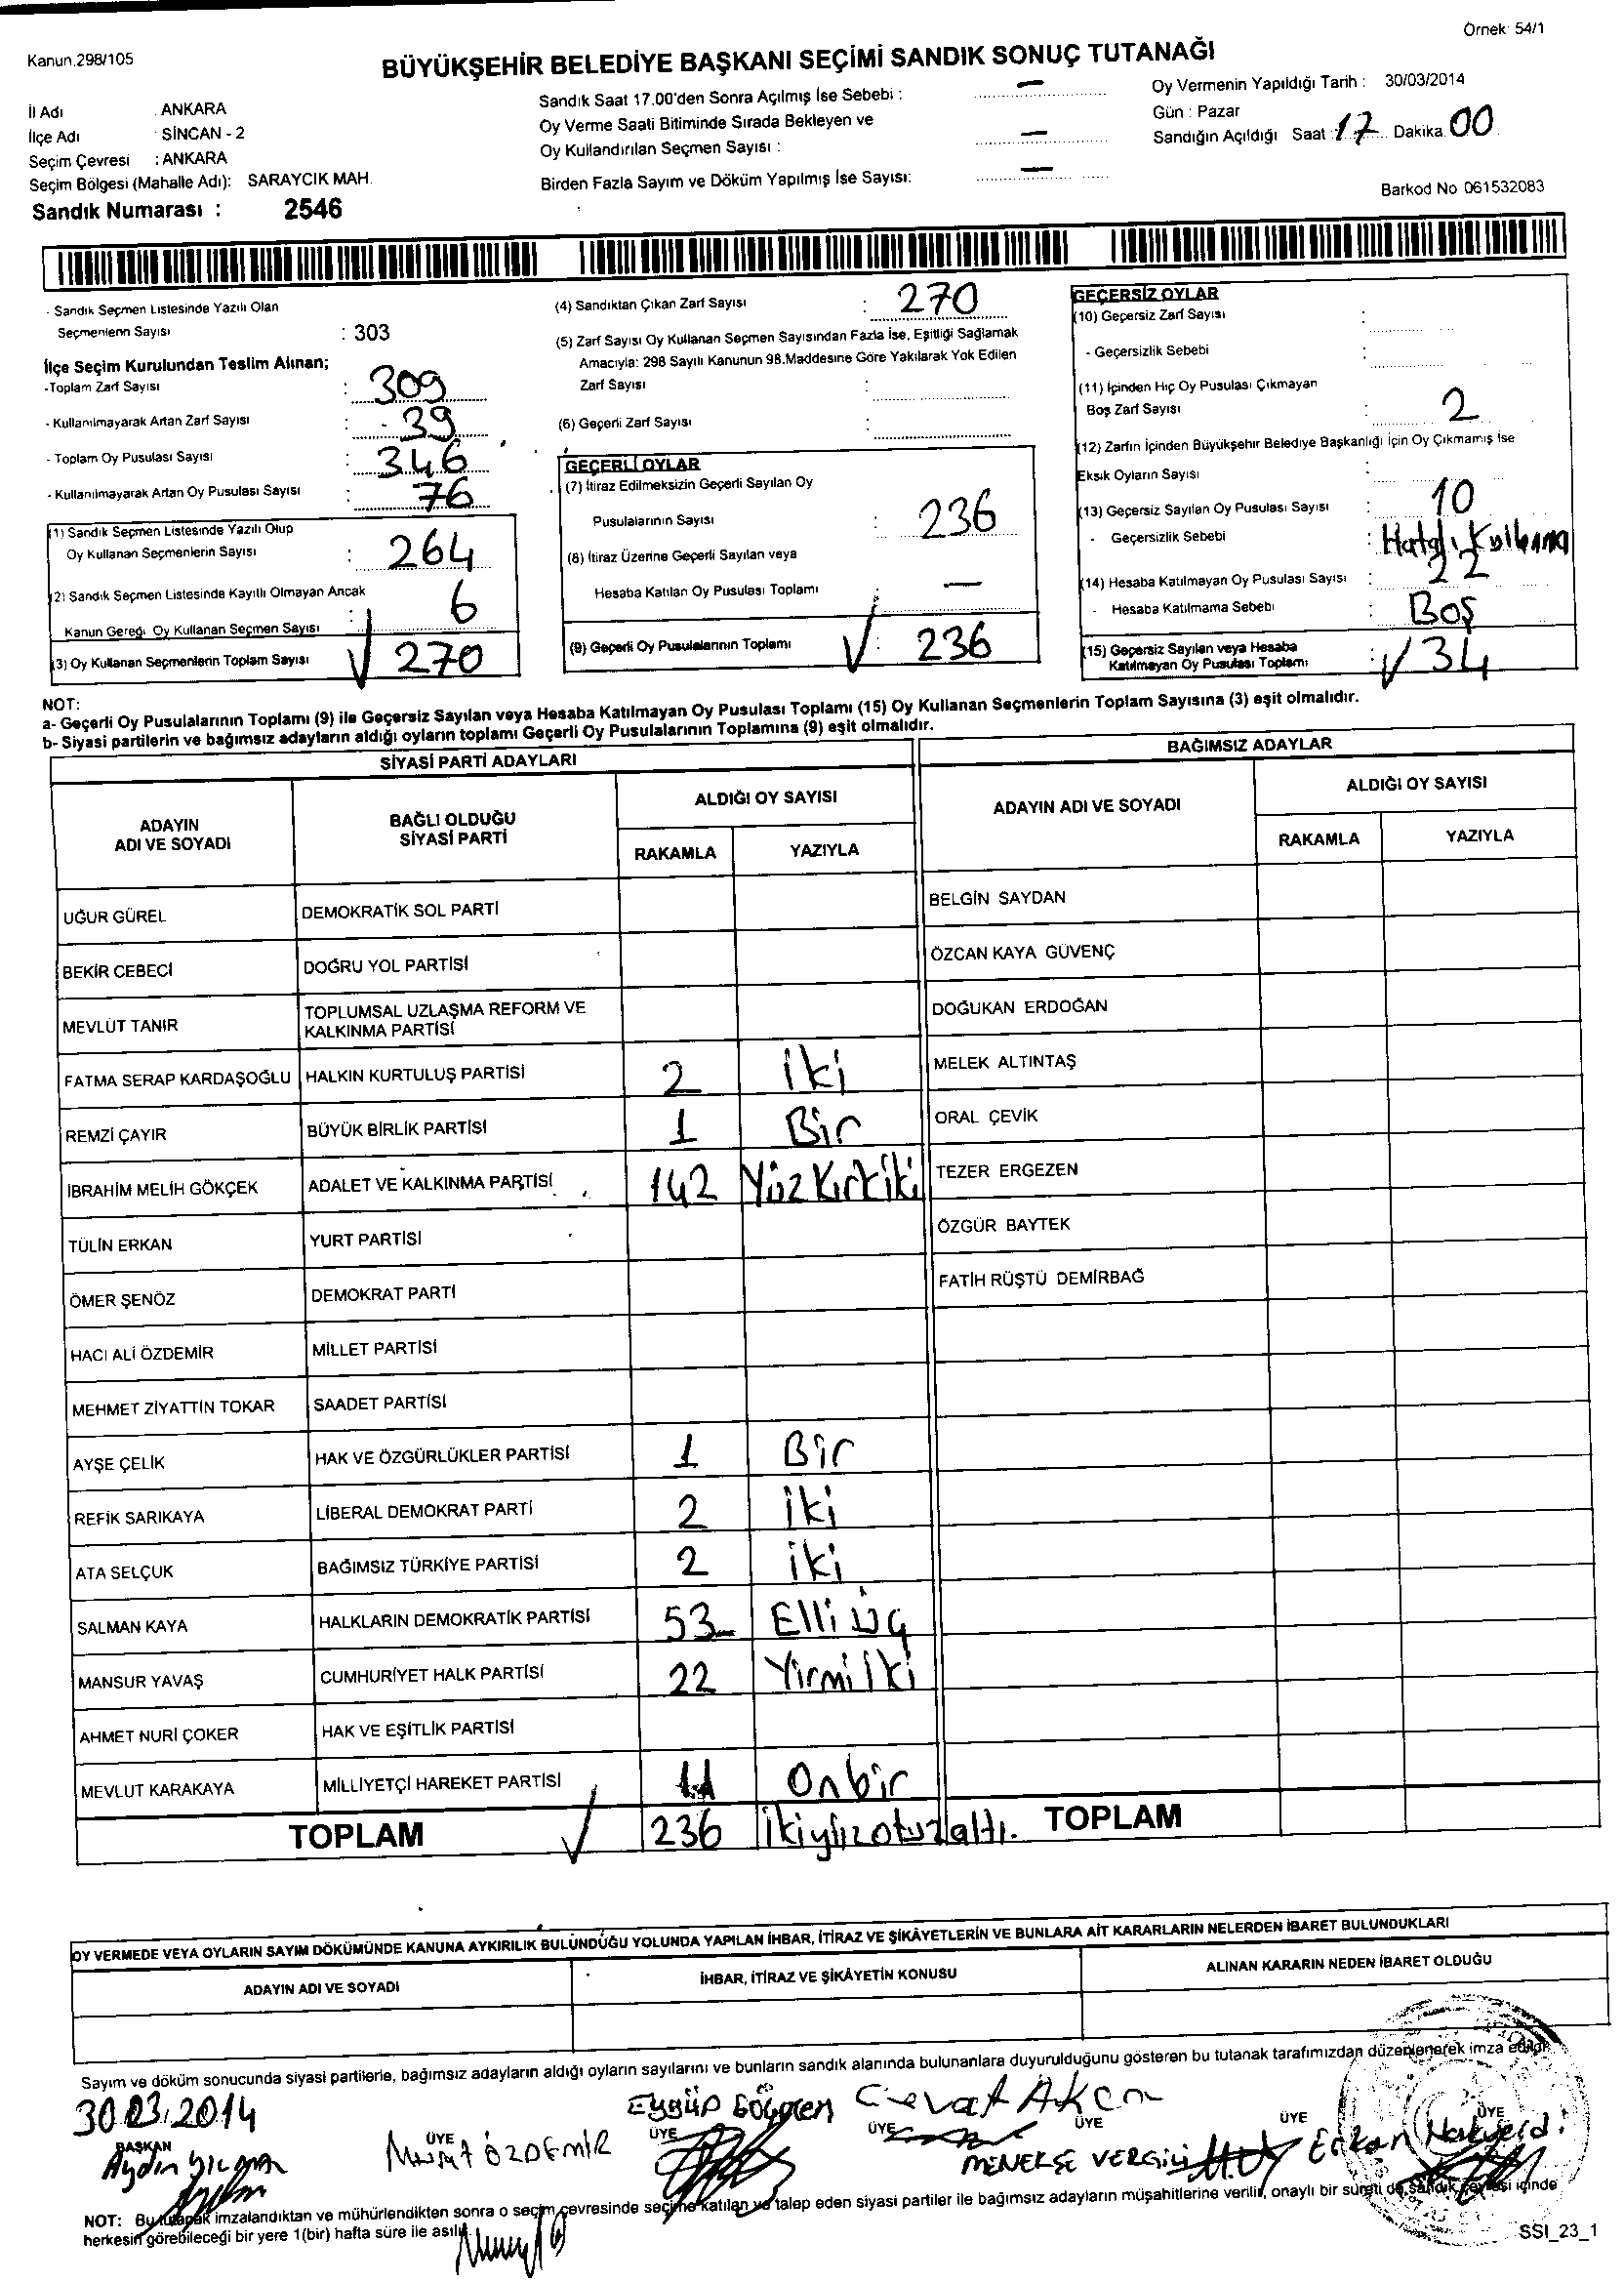 Örnek: 54/1
Kanun.298/105
BÜYÜKŞEHİR BELEDİYE BAŞKANI SEÇİMİ SANDIK SONUÇ TUTANAĞI
İl Adı ANKARA
İlçe Adı SİNCAN - 2
Seçim Çevresi : ANKARA
Seçim Bölgesi (Mahalle Adı): SARAYCIK MAH.
Sandık Numarası : 2546
Sandık Saat 17.00'den Sonra Açılmış İse Sebebi : —
Oy Verme Saati Bitiminde Sırada Bekleyen ve
Oy Kullandırılan Seçmen Sayısı : —
Birden Fazla Sayım ve Döküm Yapılmış İse Sayısı: —
Oy Vermenin Yapıldığı Tarih : 30/03/2014
Gün : Pazar
Sandığın Açıldığı Saat : 17 Dakika 00
Barkod No 061532083
- Sandık Seçmen Listesinde Yazılı Olan
Seçmenlerin Sayısı : 303
İlçe Seçim Kurulundan Teslim Alınan;
-Toplam Zarf Sayısı : 309
- Kullanılmayarak Artan Zarf Sayısı : 39
- Toplam Oy Pusulası Sayısı : 346
- Kullanılmayarak Artan Oy Pusulası Sayısı : 76
(1) Sandık Seçmen Listesinde Yazılı Olup
Oy Kullanan Seçmenlerin Sayısı : 264
(2) Sandık Seçmen Listesinde Kayıtlı Olmayan Ancak
Kanun Gereği Oy Kullanan Seçmen Sayısı : 6
(3) Oy Kullanan Seçmenlerin Toplam Sayısı 270
(4) Sandıktan Çıkan Zarf Sayısı : 270
(5) Zarf Sayısı Oy Kullanan Seçmen Sayısından Fazla İse, Eşitliği Sağlamak
Amacıyla: 298 Sayılı Kanunun 98.Maddesine Göre Yakılarak Yok Edilen
Zarf Sayısı :
(6) Geçerli Zarf Sayısı :
GEÇERLİ OYLAR
(7) İtiraz Edilmeksizin Geçerli Sayılan Oy
Pusulalarının Sayısı : 236
(8) İtiraz Üzerine Geçerli Sayılan veya
Hesaba Katılan Oy Pusulası Toplamı : —
(9) Geçerli Oy Pusulalarının Toplamı : 236
GEÇERSİZ OYLAR
(10) Geçersiz Zarf Sayısı :
- Geçersizlik Sebebi :
(11) İçinden Hiç Oy Pusulası Çıkmayan
Boş Zarf Sayısı : 2
(12) Zarfın İçinden Büyükşehir Belediye Başkanlığı İçin Oy Çıkmamış İse
Eksik Oyların Sayısı :
(13) Geçersiz Sayılan Oy Pusulası Sayısı : 10
- Geçersizlik Sebebi : Hatalı Kullanma
(14) Hesaba Katılmayan Oy Pusulası Sayısı : 22
- Hesaba Katılmama Sebebi : Boş
(15) Geçersiz Sayılan veya Hesaba
Katılmayan Oy Pusulası Toplamı : 34
NOT:
a- Geçerli Oy Pusulalarının Toplamı (9) ile Geçersiz Sayılan veya Hesaba Katılmayan Oy Pusulası Toplamı (15) Oy Kullanan Seçmenlerin Toplam Sayısına (3) eşit olmalıdır.
b- Siyasi partilerin ve bağımsız adayların aldığı oyların toplamı Geçerli Oy Pusulalarının Toplamına (9) eşit olmalıdır.
SİYASİ PARTİ ADAYLARI
ADAYIN ADI VE SOYADI BAĞLI OLDUĞU SİYASİ PARTİ ALDIĞI OY SAYISI
RAKAMLA YAZIYLA
UĞUR GÜREL DEMOKRATİK SOL PARTİ
BEKİR CEBECİ DOĞRU YOL PARTİSİ
MEVLÜT TANIR TOPLUMSAL UZLAŞMA REFORM VE KALKINMA PARTİSİ
FATMA SERAP KARDAŞOĞLU HALKIN KURTULUŞ PARTİSİ 2 iki
REMZİ ÇAYIR BÜYÜK BİRLİK PARTİSİ 1 Bir
İBRAHİM MELİH GÖKÇEK ADALET VE KALKINMA PARTİSİ 142 Yüz Kırkiki
TÜLİN ERKAN YURT PARTİSİ
ÖMER ŞENÖZ DEMOKRAT PARTİ
HACI ALİ ÖZDEMİR MİLLET PARTİSİ
MEHMET ZİYATTİN TOKAR SAADET PARTİSİ
AYŞE ÇELİK HAK VE ÖZGÜRLÜKLER PARTİSİ 1 Bir
REFİK SARIKAYA LİBERAL DEMOKRAT PARTİ 2 iki
ATA SELÇUK BAĞIMSIZ TÜRKİYE PARTİSİ 2 iki
SALMAN KAYA HALKLARIN DEMOKRATİK PARTİSİ 53 Elli üç
MANSUR YAVAŞ CUMHURİYET HALK PARTİSİ 22 Yirmi İki
AHMET NURİ ÇOKER HAK VE EŞİTLİK PARTİSİ
MEVLUT KARAKAYA MİLLİYETÇİ HAREKET PARTİSİ 11 Onbir
TOPLAM 236 ikiyüzotuzaltı.
BAĞIMSIZ ADAYLAR
ADAYIN ADI VE SOYADI ALDIĞI OY SAYISI
RAKAMLA YAZIYLA
BELGİN SAYDAN
ÖZCAN KAYA GÜVENÇ
DOĞUKAN ERDOĞAN
MELEK ALTINTAŞ
ORAL ÇEVİK
TEZER ERGEZEN
ÖZGÜR BAYTEK
FATİH RÜŞTÜ DEMİRBAĞ
TOPLAM
OY VERMEDE VEYA OYLARIN SAYIM DÖKÜMÜNDE KANUNA AYKIRILIK BULUNDUĞU YOLUNDA YAPILAN İHBAR, İTİRAZ VE ŞİKÂYETLERİN VE BUNLARA AİT KARARLARIN NELERDEN İBARET BULUNDUKLARI
ADAYIN ADI VE SOYADI İHBAR, İTİRAZ VE ŞİKÂYETİN KONUSU ALINAN KARARIN NEDEN İBARET OLDUĞU
Sayım ve döküm sonucunda siyasi partilerle, bağımsız adayların aldığı oyların sayılarını ve bunların sandık alanında bulunanlara duyurulduğunu gösteren bu tutanak tarafımızdan düzenlenerek imza edildi.
30.03.2014 Eyyüp Cevat
BAŞKAN ÜYE ÜYE ÜYE ÜYE ÜYE ÜYE
Aydın Murat ÖZDEMİR MENEKŞE VERGİLİ Erkan
NOT: Bu tutanak imzalandıktan ve mühürlendikten sonra o seçim çevresinde seçime katılan ve talep eden siyasi partiler ile bağımsız adayların müşahitlerine verilir, onaylı bir sureti de sandık çevresi içinde
herkesin görebileceği bir yere 1(bir) hafta süre ile asılır.
SSI_23_1